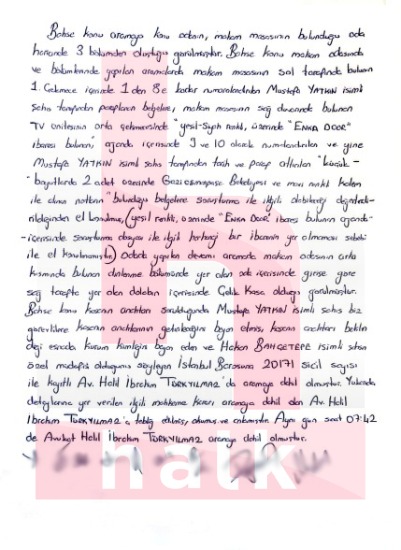 Bahse konu aramaya konu odanın, makam masasının bulunduğu oda
haricinde 3 bölümden oluştuğu görülmüştür. Bahse konu makam odasında
ve bölümlerinde yapılan aramalarda makam masasının sol tarafında bulunan
1. Çekmece içerisinde 1 den 8'e kadar numaralandırılan Mustafa YATKIN isimli
şahıs tarafından paraflanan belgeler, makam masasının sağ duvarında bulunan
TV ünitesinin orta çekmecesinde "yeşil-siyah renkli, üzerinde "ENKA DOOR"
ibaresi bulunan, ajanda içerisinde 9 ve 10 olarak numaralandırılan ve yine
Mustafa YATKIN isimli şahıs tarafından tarih ve paraf atılan "küçük-
-boyutlarda 2 adet üzerinde Gaziosmanpaşa Belediyesi ve mavi renkli kalem
ile alma notları" bulunduğu belgelere soruşturma ile ilgili olabileceği değerlendi-
rildiğinden el konulmuş, (yeşil renkli, üzerinde "ENKA DOOR" ibaresi bulunan ajanda-
-içerisinde soruşturma dosyası ile ilgili herhangi bir ibarenin yer olmaması sebebi
ile el konulmamıştır.) Odada yapılan devamı aramada makam odasının arka
kısmında bulunan dinlenme bölümünde yer alan oda içerisinde girişe göre
sağ tarafta yer alan dolabın içerisinde Çelik Kasa olduğu görülmüştür.
Bahse konu kasanın anahtarı sorulduğunda Mustafa YATKIN isimli şahıs biz
görevlilere kasanın anahtarının getirileceğini beyan etmiş, kasanın anahtarı beklen
diği esnada kurum kimliğin beyan eden ve Hakan BAHÇETEPE isimli şahsın
özel müdafisi olduğunu söyleyen İstanbul Barosuna 20171 sicil sayısı
ile kayıtlı Av. Halil İbrahim TÜRKYILMAZ da aramaya dahil olmuştur. Yukarıda
detaylarına yer verilen ilgili mahkeme kararı aramaya dahil olan Av. Halil
İbrahim TÜRKYILMAZ'a tebliğ edilmiş, okumuş ve anlamıştır. Aynı gün saat 07:42
de Avukat Halil İbrahim TÜRKYILMAZ aramaya dahil olmuştur.
h
halk